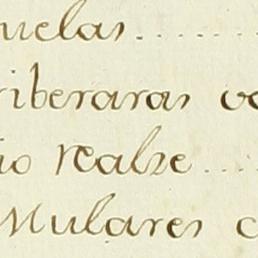 uelas........
riberaras vo
io realze....
Mulares c